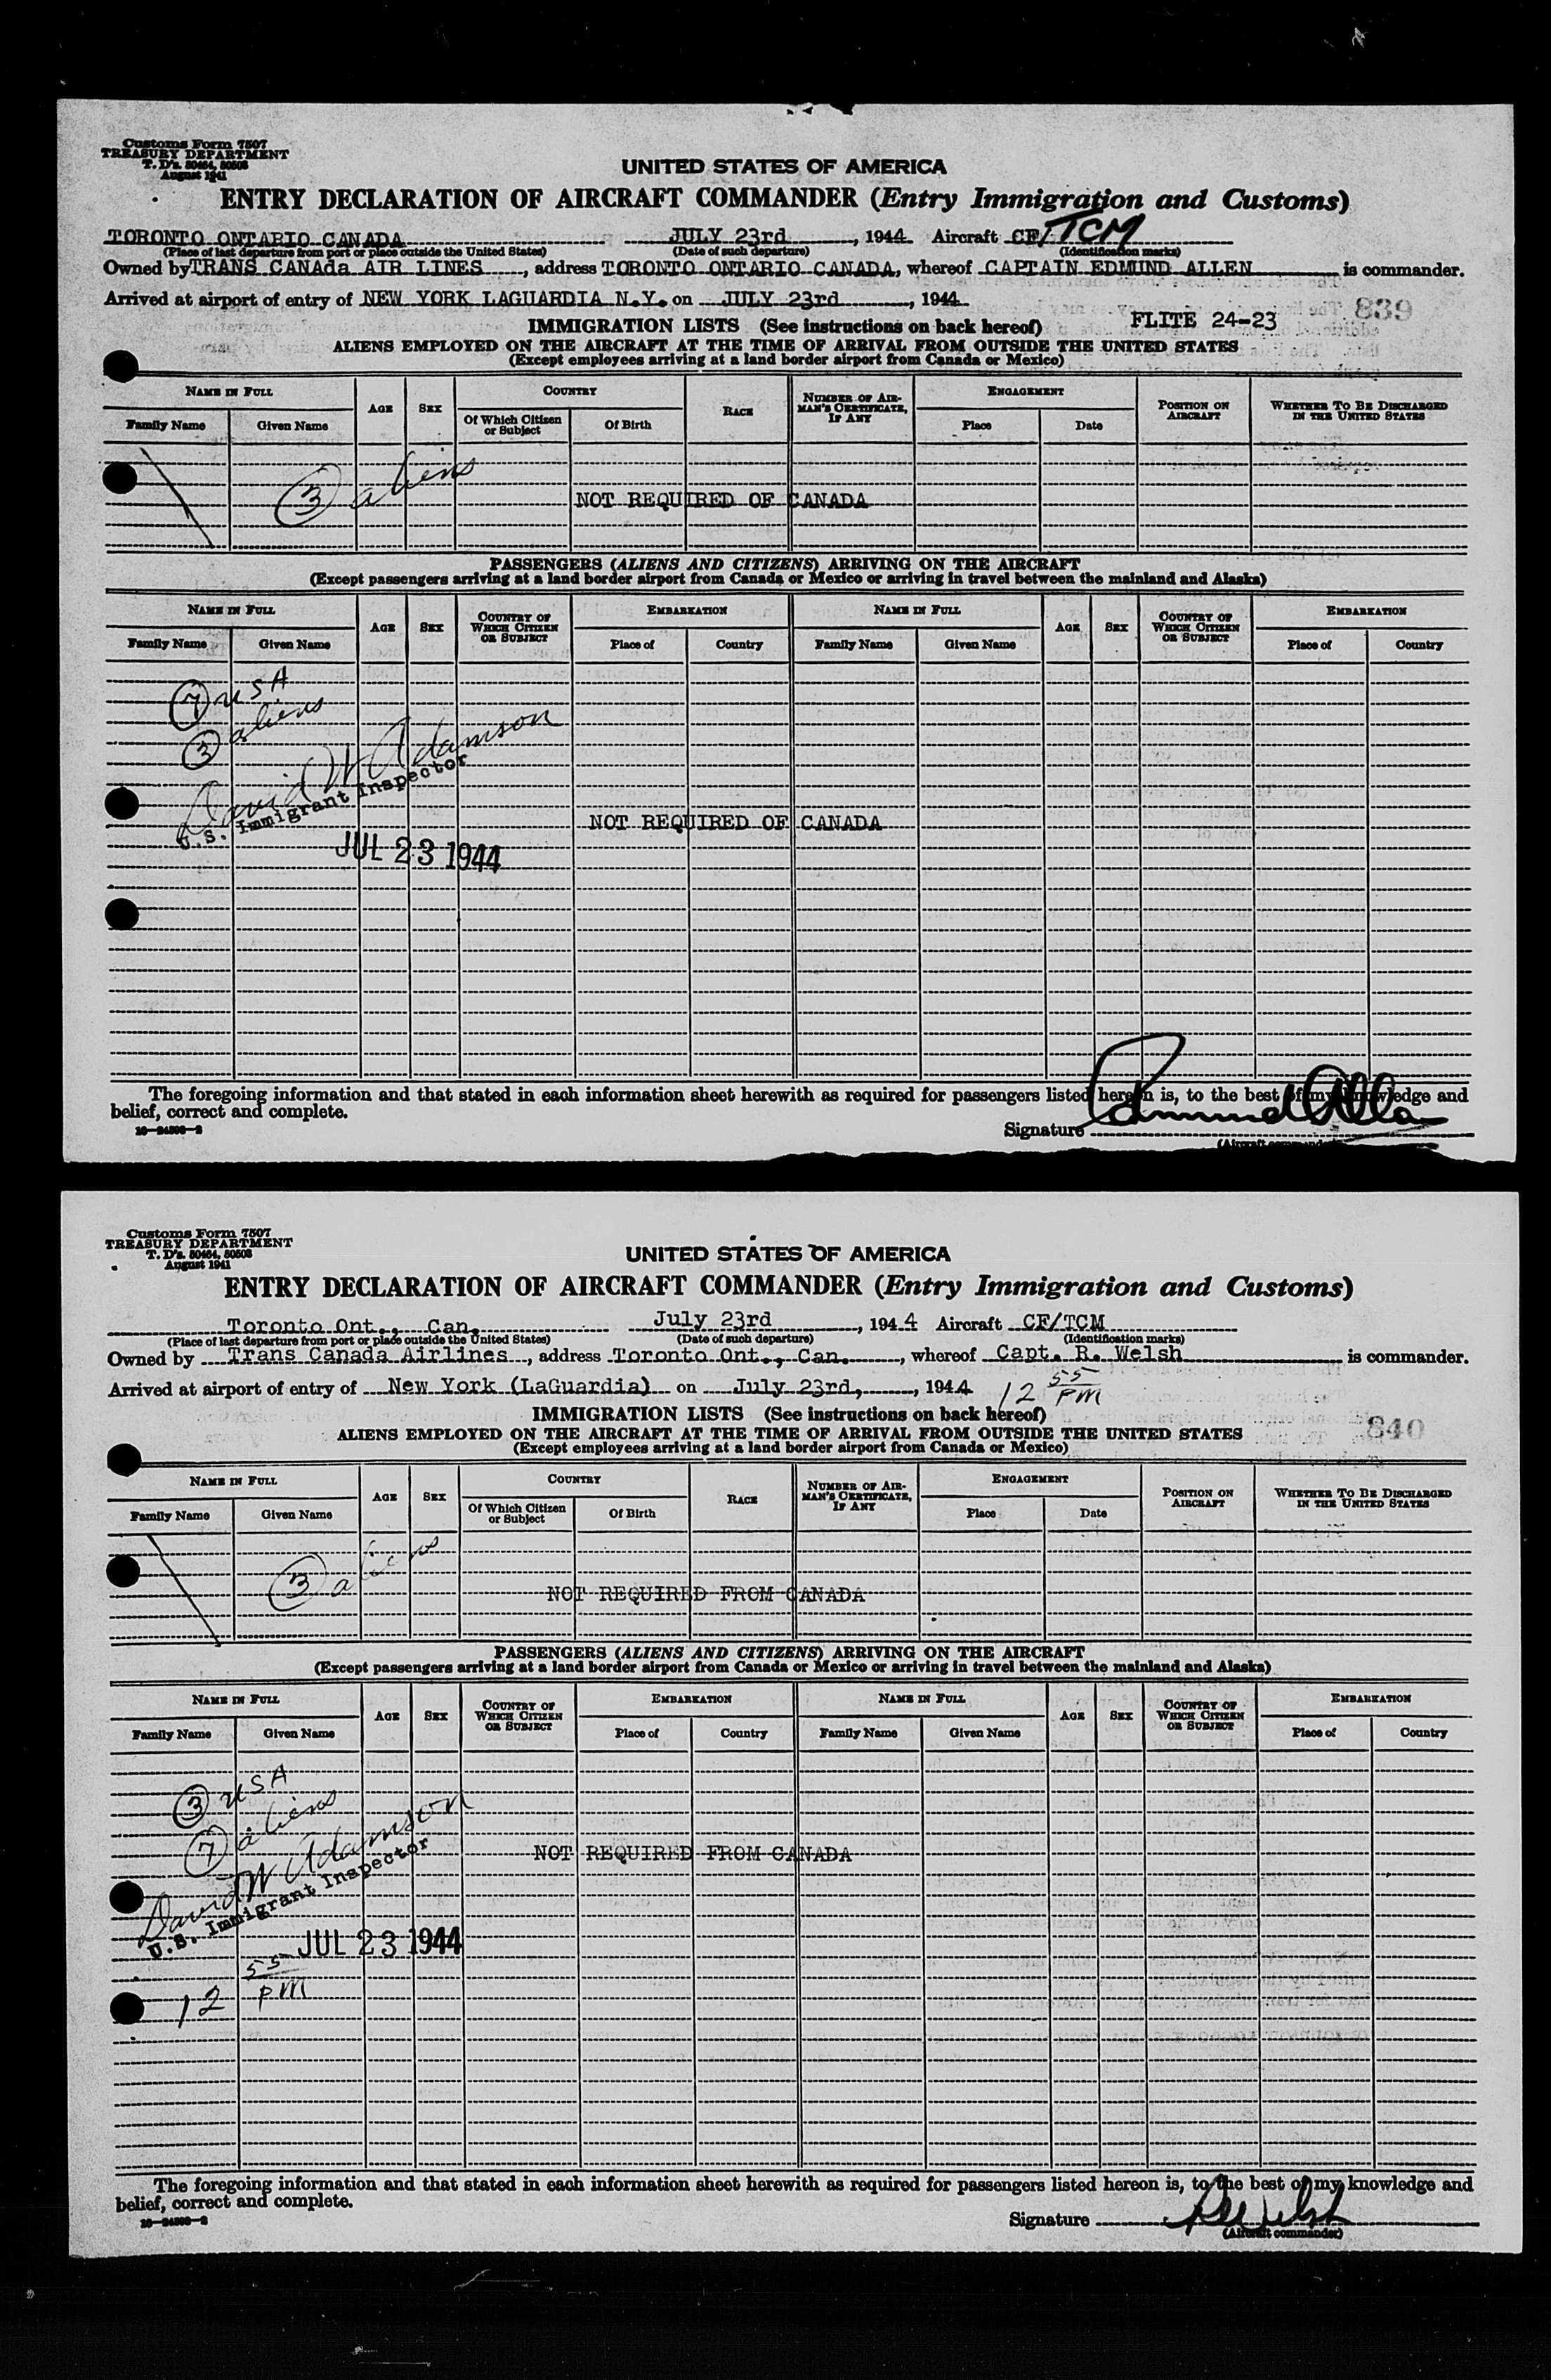 Customs Form 7507
TREASURY DEPARTMENT
T. D's. 50464, 50503
August 1941
UNITED STATES OF AMERICA
ENTRY DECLARATION OF AIRCRAFT COMMANDER (Entry Immigration and Customs)
TORONTO ONTARIO CANADA JULY 23rd, 1944 Aircraft CF/TCM
(Place of last departure from port or place outside the United States) (Date of such departure) (Identification marks)
Owned by TRANS CANAda AIR LINES, address TORONTO ONTARIO CANADA, whereof CAPTAIN EDMUND ALLEN is commander.
Arrived at airport of entry of NEW YORK LAGUARDIA N.Y. on JULY 23rd, 1944
839
IMMIGRATION LISTS (See instructions on back hereof) FLITE 24-23
ALIENS EMPLOYED ON THE AIRCRAFT AT THE TIME OF ARRIVAL FROM OUTSIDE THE UNITED STATES
(Except employees arriving at a land border airport from Canada or Mexico)
NAME IN FULL AGE SEX COUNTRY RACE NUMBER OF AIRMAN'S CERTIFICATE, IF ANY ENGAGEMENT POSITION ON AIRCRAFT WHETHER TO BE DISCHARGED IN THE UNITED STATES
Family Name Given Name Of Which Citizen or Subject Of Birth Place Date
3 aliens
NOT REQUIRED OF CANADA
PASSENGERS (ALIENS AND CITIZENS) ARRIVING ON THE AIRCRAFT
(Except passengers arriving at a land border airport from Canada or Mexico or arriving in travel between the mainland and Alaska)
NAME IN FULL AGE SEX COUNTRY OF WHICH CITIZEN OR SUBJECT EMBARKATION NAME IN FULL AGE SEX COUNTRY OF WHICH CITIZEN OR SUBJECT EMBARKATION
Family Name Given Name Place of Country Family Name Given Name Place of Country
7 USA
3 aliens
David W Adamson
U.S. Immigrant Inspector
NOT REQUIRED OF CANADA
JUL 23 1944
The foregoing information and that stated in each information sheet herewith as required for passengers listed hereon is, to the best of my knowledge and
belief, correct and complete.
16-24598-2
Signature Edmund Allen
(Aircraft commander)
Customs Form 7507
TREASURY DEPARTMENT
T. D's. 50464, 50503
August 1941
UNITED STATES OF AMERICA
ENTRY DECLARATION OF AIRCRAFT COMMANDER (Entry Immigration and Customs)
Toronto Ont., Can. July 23rd, 1944 Aircraft CF/TCM
(Place of last departure from port or place outside the United States) (Date of such departure) (Identification marks)
Owned by Trans Canada Airlines, address Toronto Ont., Can., whereof Capt. R. Welsh is commander.
Arrived at airport of entry of New York (LaGuardia) on July 23rd, 1944 12 55 PM
IMMIGRATION LISTS (See instructions on back hereof)
840
ALIENS EMPLOYED ON THE AIRCRAFT AT THE TIME OF ARRIVAL FROM OUTSIDE THE UNITED STATES
(Except employees arriving at a land border airport from Canada or Mexico)
NAME IN FULL AGE SEX COUNTRY RACE NUMBER OF AIRMAN'S CERTIFICATE, IF ANY ENGAGEMENT POSITION ON AIRCRAFT WHETHER TO BE DISCHARGED IN THE UNITED STATES
Family Name Given Name Of Which Citizen or Subject Of Birth Place Date
3 aliens
NOT REQUIRED FROM CANADA
PASSENGERS (ALIENS AND CITIZENS) ARRIVING ON THE AIRCRAFT
(Except passengers arriving at a land border airport from Canada or Mexico or arriving in travel between the mainland and Alaska)
NAME IN FULL AGE SEX COUNTRY OF WHICH CITIZEN OR SUBJECT EMBARKATION NAME IN FULL AGE SEX COUNTRY OF WHICH CITIZEN OR SUBJECT EMBARKATION
Family Name Given Name Place of Country Family Name Given Name Place of Country
3 USA
7 aliens
NOT REQUIRED FROM CANADA
David W Adamson
U.S. Immigrant Inspector
JUL 23 1944
12 55 PM
The foregoing information and that stated in each information sheet herewith as required for passengers listed hereon is, to the best of my knowledge and
belief, correct and complete.
16-24598-2
Signature R Welsh
(Aircraft commander)